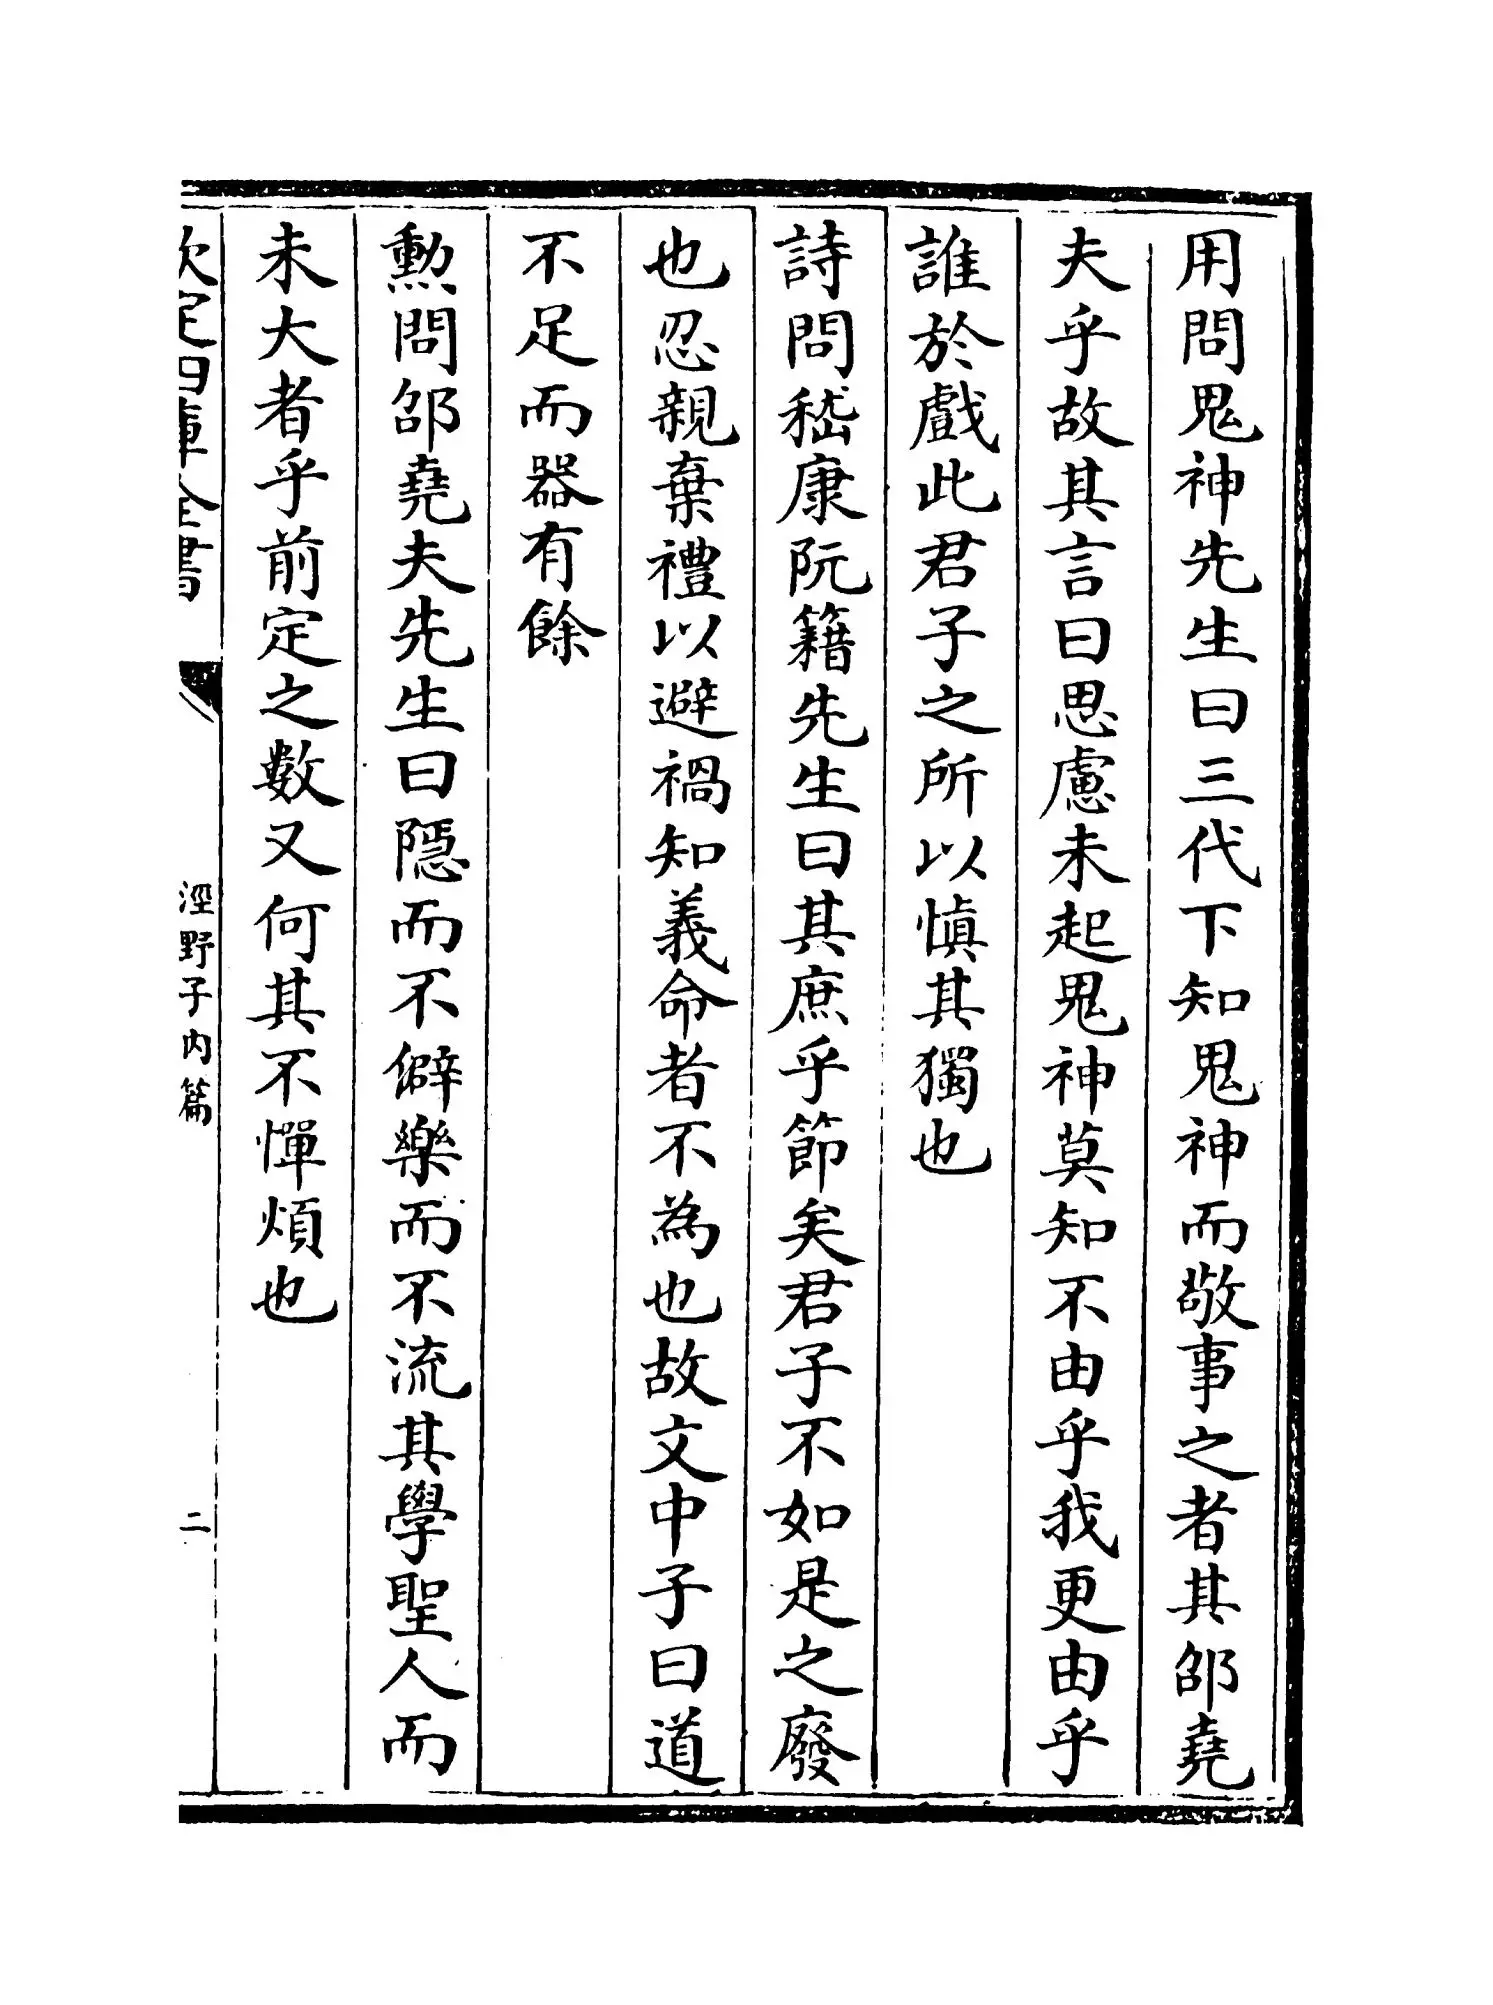 用問鬼神先生曰三代下知鬼神而敬事之者其邵堯
夫乎故其言曰思慮未起鬼神莫知不由乎我更由乎
誰於戲此君子之所以慎其獨也
詩問嵇康阮籍先生曰其庶乎節矣君子不如是之廢
也忍親棄禮以避禍知義命者不為也故文中子曰道
不足而器有餘
勲問邵堯夫先生曰隱而不僻樂而不流其學聖人而
未大者乎前定之數又何其不憚煩也
欽定四庫全書
涇野子內篇
二